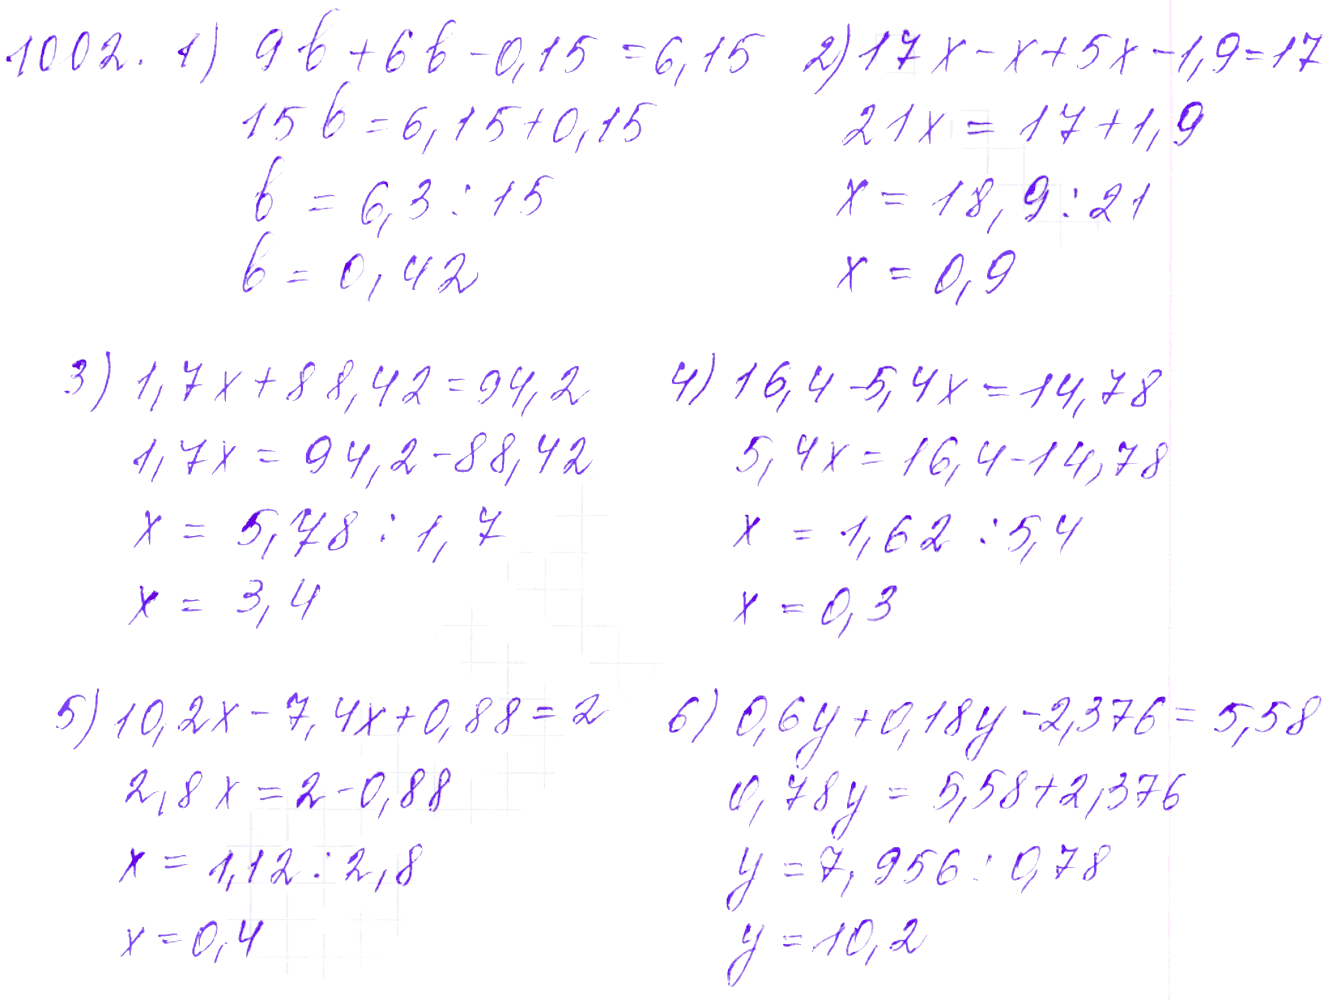 1002. 1) 9b+6b-0,15=6,15
15b=6,15+0,15
b=6,3:15
b=0,42
2) 17x-x+5x-1,9=17
21x=17+1,9
x=18,9:21
x=0,9
3) 1,7x+88,42=94,2
1,7x=94,2-88,42
x=5,78:1,7
x=3,4
4) 16,4-5,4x=14,78
5,4x=16,4-14,78
x=1,62:5,4
x=0,3
5) 10,2x-7,4x+0,88=2
2,8x=2-0,88
x=1,12:2,8
x=0,4
6) 0,6y+0,18y-2,376=5,58
0,78y=5,58+2,376
y=7,956:0,78
y=10,2